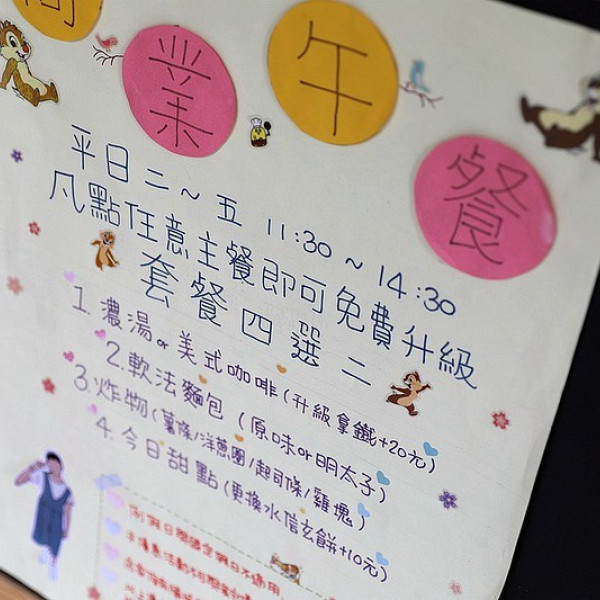 商業午餐
平日二～五 11:30～14:30
凡點任意主餐即可免費升級
套餐四選二
1. 濃湯or美式咖啡(升級拿鐵+20元)
2. 軟法麵包 (原味or明太子)
3. 炸物(薯條/洋蔥圈/起司條/雞塊)
4. 今日甜點(更換水信玄餅+10元)